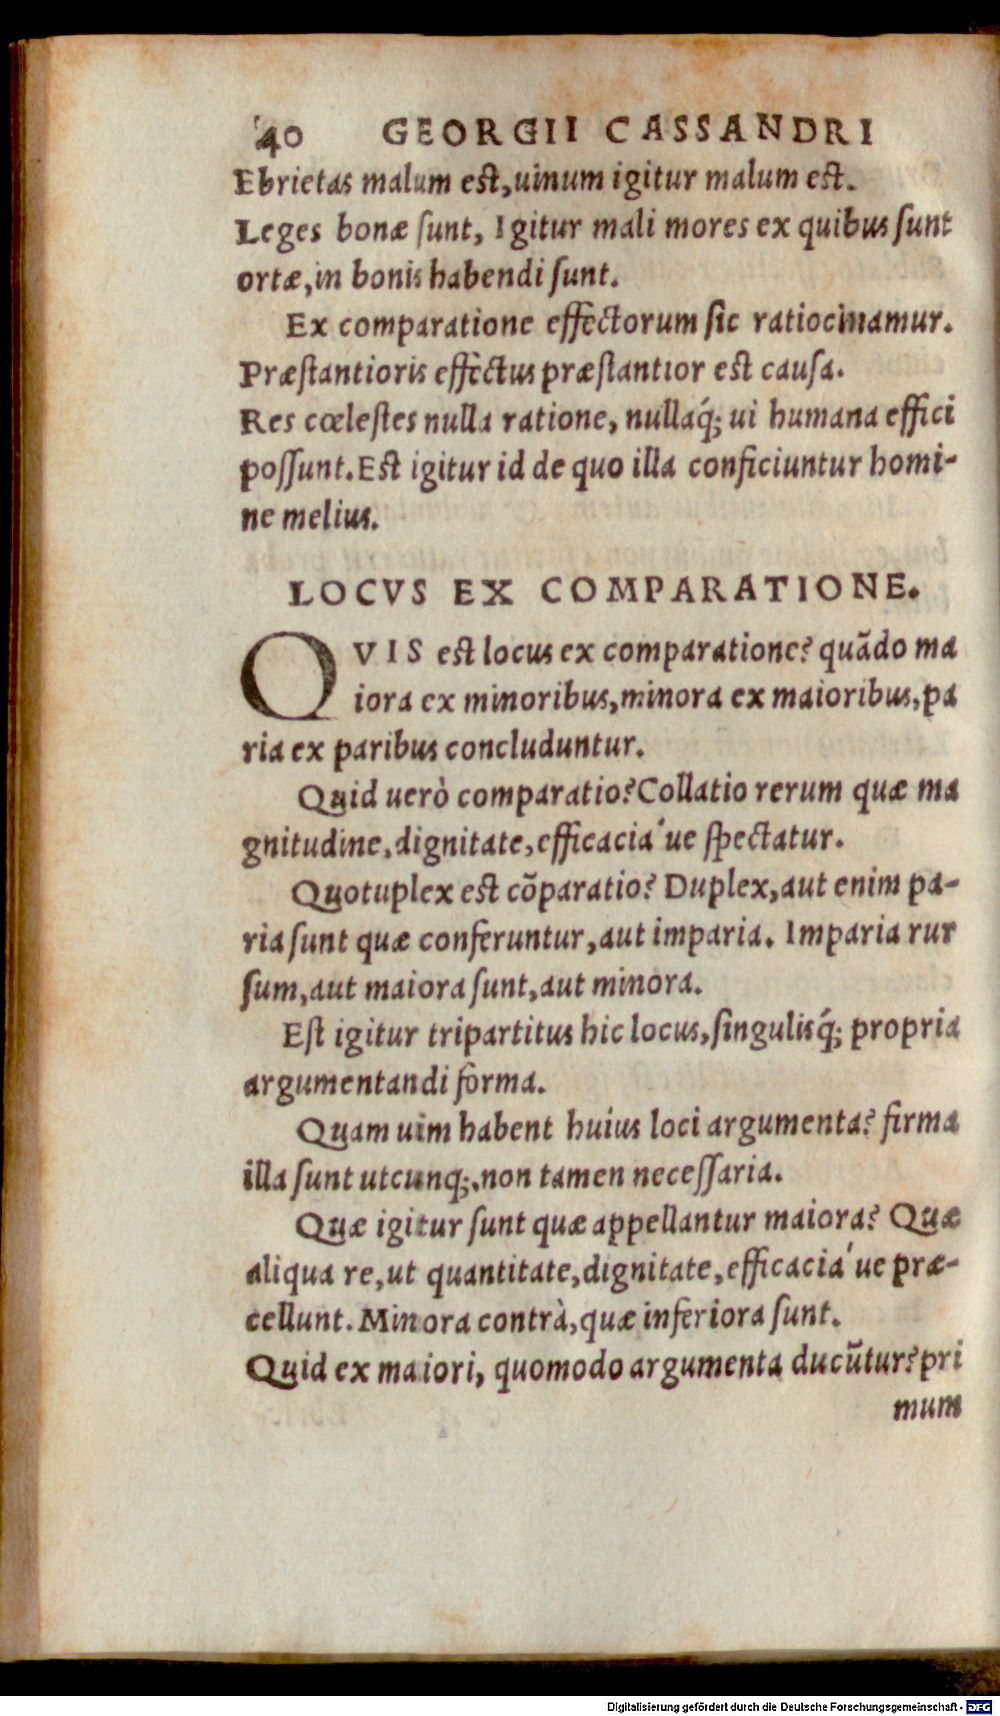 40 GEORGII CASSANDRI
Ebrietas malum est, uinum igitur malum est.
Leges bonæ ſunt, Igitur mali mores ex quibus ſunt
ortæ, in bonis habendi ſunt.
Ex comparatione effectorum ſic ratiocinamur.
Præſtantioris effectus præſtantior est cauſa.
Res cœleſtes nulla ratione, nullaq́; ui humana effici
poſſunt. Est igitur id de quo illa conficiuntur homi-
ne melius.
LOCVS EX COMPARATIONE.
QVIS est locus ex comparatione? quãdo ma
iora ex minoribus, minora ex maioribus, pa
ria ex paribus concluduntur.
Quid uerò comparatio? Collatio rerum quæ ma
gnitudine, dignitate, efficacia ́ue ſpectatur.
Quotuplex est cõparatio? Duplex, aut enim pa-
ria ſunt quæ conferuntur, aut imparia. Imparia rur
ſum, aut maiora ſunt, aut minora.
Eſt igitur tripartitus hic locus, ſingulisq́; propria
argumentandi forma.
Quam uim habent huius loci argumenta? firma
illa ſunt utcunq;, non tamen neceſſaria.
Quæ igitur ſunt quæ appellantur maiora? Quæ
aliqua re, ut quantitate, dignitate, efficacia ́ue præ-
cellunt. Minora contrà, quæ inferiora ſunt.
Quid ex maiori, quomodo argumenta ducũtur? pri
mum
Digitalisierung gefördert durch die Deutsche Forschungsgemeinschaft - DFG